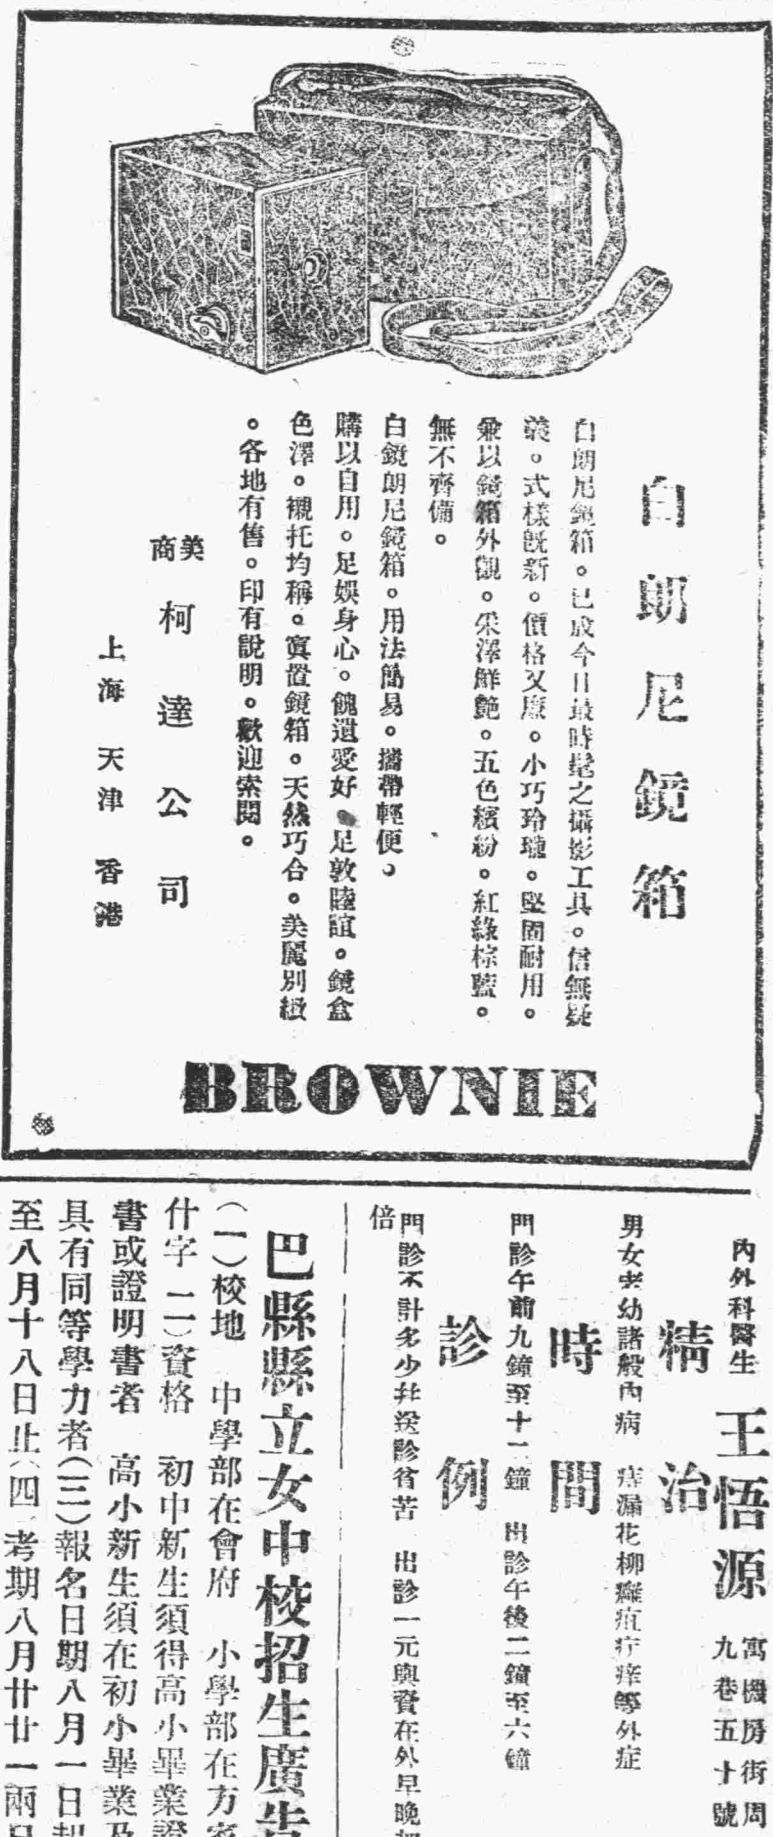 白朗尼鏡箱
白朗尼鏡箱。已成今日最時髦之攝影工具。信無疑
義。式樣旣新。價格又廉。小巧玲瓏。堅固耐用。
兼以鏡箱外觀。采澤鮮艶。五色繽紛。紅綠棕藍。
無不齊備。
白鏡朗尼鏡箱。用法簡易。攜帶輕便。
購以自用。足娛身心。餽遺愛好。足敦睦誼。鏡盒
色澤。襯托均稱。寘置鏡箱。天然巧合。美麗別緻
。各地有售。印有說明。歡迎索閱。
美商
柯達公司
上海 天津 香港
BROWNIE
內外科醫生 王悟源 寓機房街周
九巷五十號
精治
男女老幼諸般內病 痔漏花柳癰疽疔痒等外症
時間
門診午前九鐘至十二鐘 出診午後二鐘至六鐘
診例
門診不計多少幷送診貧苦 出診一元輿資在外早晚加
倍
巴縣縣立女中校招生廣告
(一)校地 中學部在會府 小學部在方家
什字 二)資格 初中新生須得高小畢業證
書或證明書者 高小新生須在初小畢業及
具有同等學力者(三)報名日期八月一日起
至八月十八日止(四 考期八月廿廿一兩日